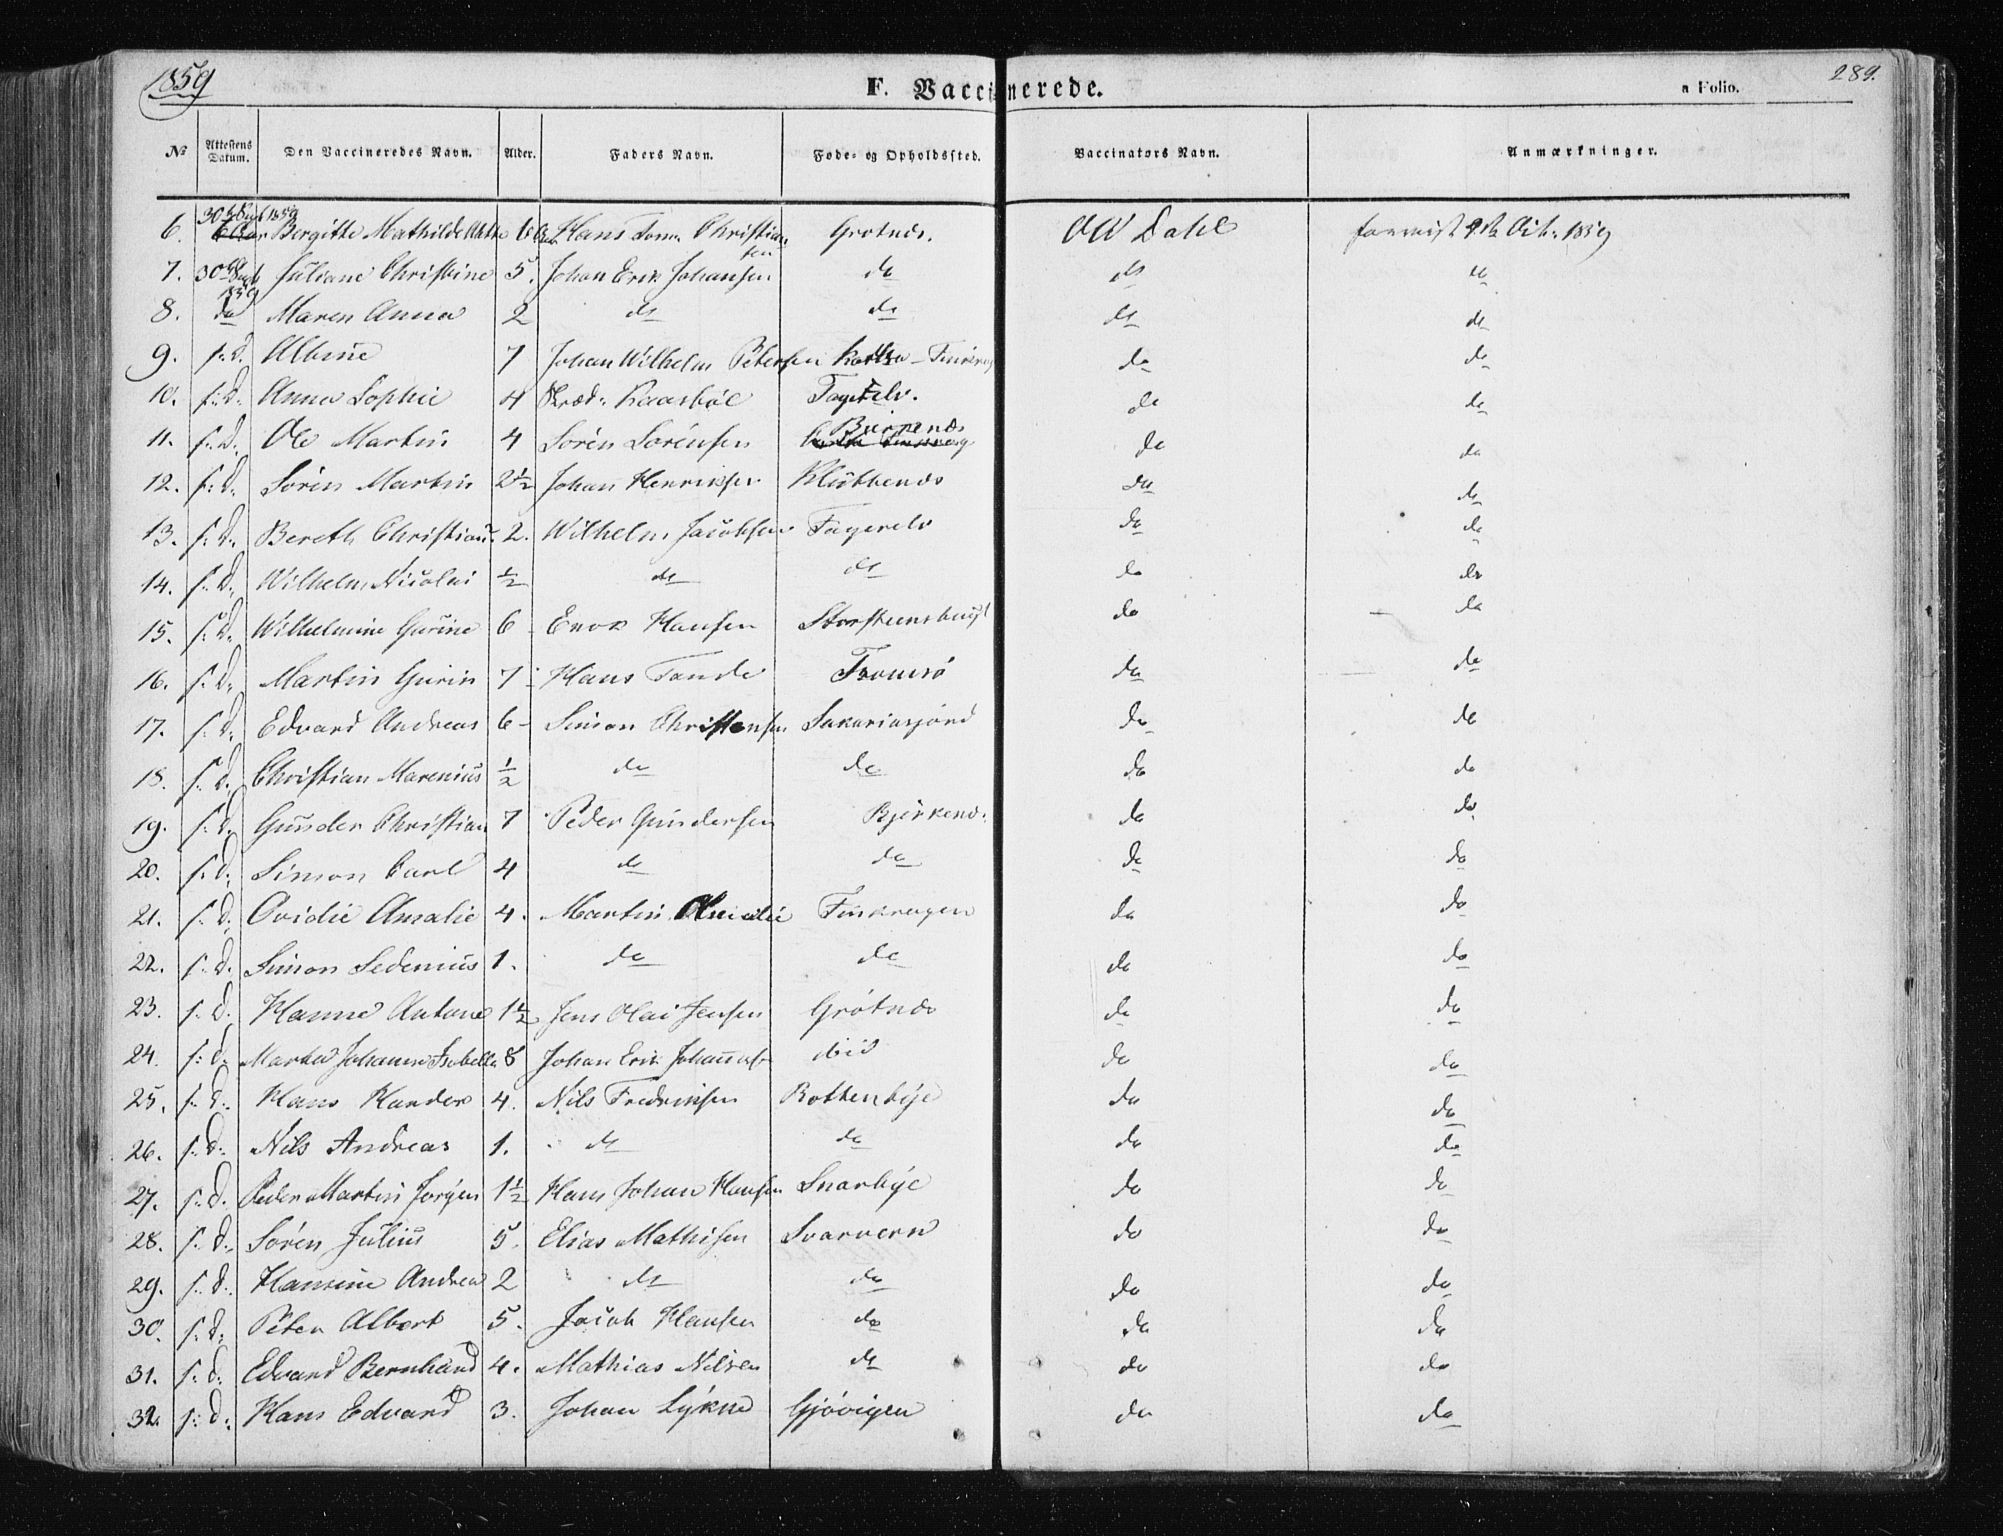 1859 F. Vaccinerede. a Folio. 289.
No Attestens Datum. Den Vaccineredes Navn. Alder. Faders Navn. Føde- og Opholdssted. Vaccinators Navn. Anmærkninger.
6. 30 1859 Bergitte Mathilde 6 Hans Christiansen Grøtnæs. Dahl 1859
7. 30 1859 Juliane Christine 5. Johan Erik Johansen do do do
8. do Maren Anna 2 do do do do
9. s: D. Albine 7 Johan Wilhelm Petersen do do
10. s: D: Anna Sophie 4 Kaasbøl Fagerelv. do do
11. s: D. Ole Martin 4 Sørén Sørénsen do do
12. s: D: Sørén Martin 2½ Johan Henriksen Klubbenæs do do
13. s: D: Bereth Christian 2. Wilhelm Jacobsen Fagerelv do do
14. s: D: Wilhelm Nicolai ½ do do do do
15. s: D: Wilhelmine Gurine 6 Enok Hansen do do
16. s: D: Martin Gurin 7 Hans Tande Tromsø do do
17. s: D: Edvard Andreas 6 Simon Christensen Sakariasjord do do
18. s: D. Christian Marenius ½ do do do do
19. s: D. Gunder Christian 7 Peder Gundersen Bjerkenæ. do do
20. s: D: Simon Carl 4 do do do do
21. s: D: Ovidie Amalie 4. Martin Finkrogen do do
22. s: D. Simon Sedenius 1. do do do do
23. s: D. Hanne Antone 1½ Jens Olai Jensen Grøtnæs do do
24. s: D: Martha Johanne Isabella 8 Johan Erik Johansen ibid do do
25. s: D: Hans Hander 4. Nils Fredriksen Rottenbýe do do
26. s: D: Nils Andreas 1. do do do do
27. s: D. Peder Martin Jørgen 1½ Hans Johan Hansen Snarbýe do do
28. s: D: Sørén Julius 5. Elias Mathisen Svarvern do do
29. s: D: Hansine Andrea 2 do do do do
30. s: D: Peter Albert 5. Jacob Hansen do do do
31. s: D: Edvard Bernhard 4. Mathias Nilsen do do do
32. s: D: Hans Edvard 3. Johan Lýkne Gjøvigen do do